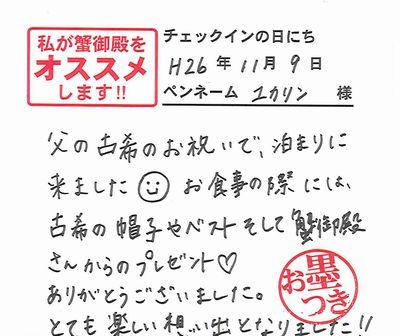 私が蟹御殿を
オススメ
します!!
チェックインの日にち
H26年11月9日
ペンネーム ユカリン 様
父の古希のお祝いで、泊まりに
来ました☺ お食事の際には、
古希の帽子やベストそして蟹御殿
さんからのプレゼント♡
ありがとうございました。
とても楽しい想い出となりました!!
お墨
つき